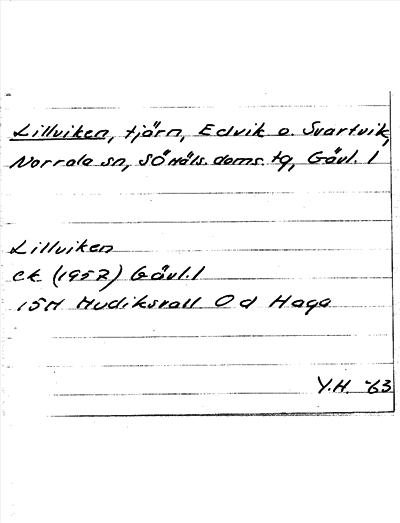 Lillviken, tjärn, Edvik o. Svartvik,
Norrala sn, SÖ Häls. doms. tg, Gävl. l
Lillviken
ek (1952) Gävl. l
15H Hudiksvall 0 d Haga
Y.H. -63